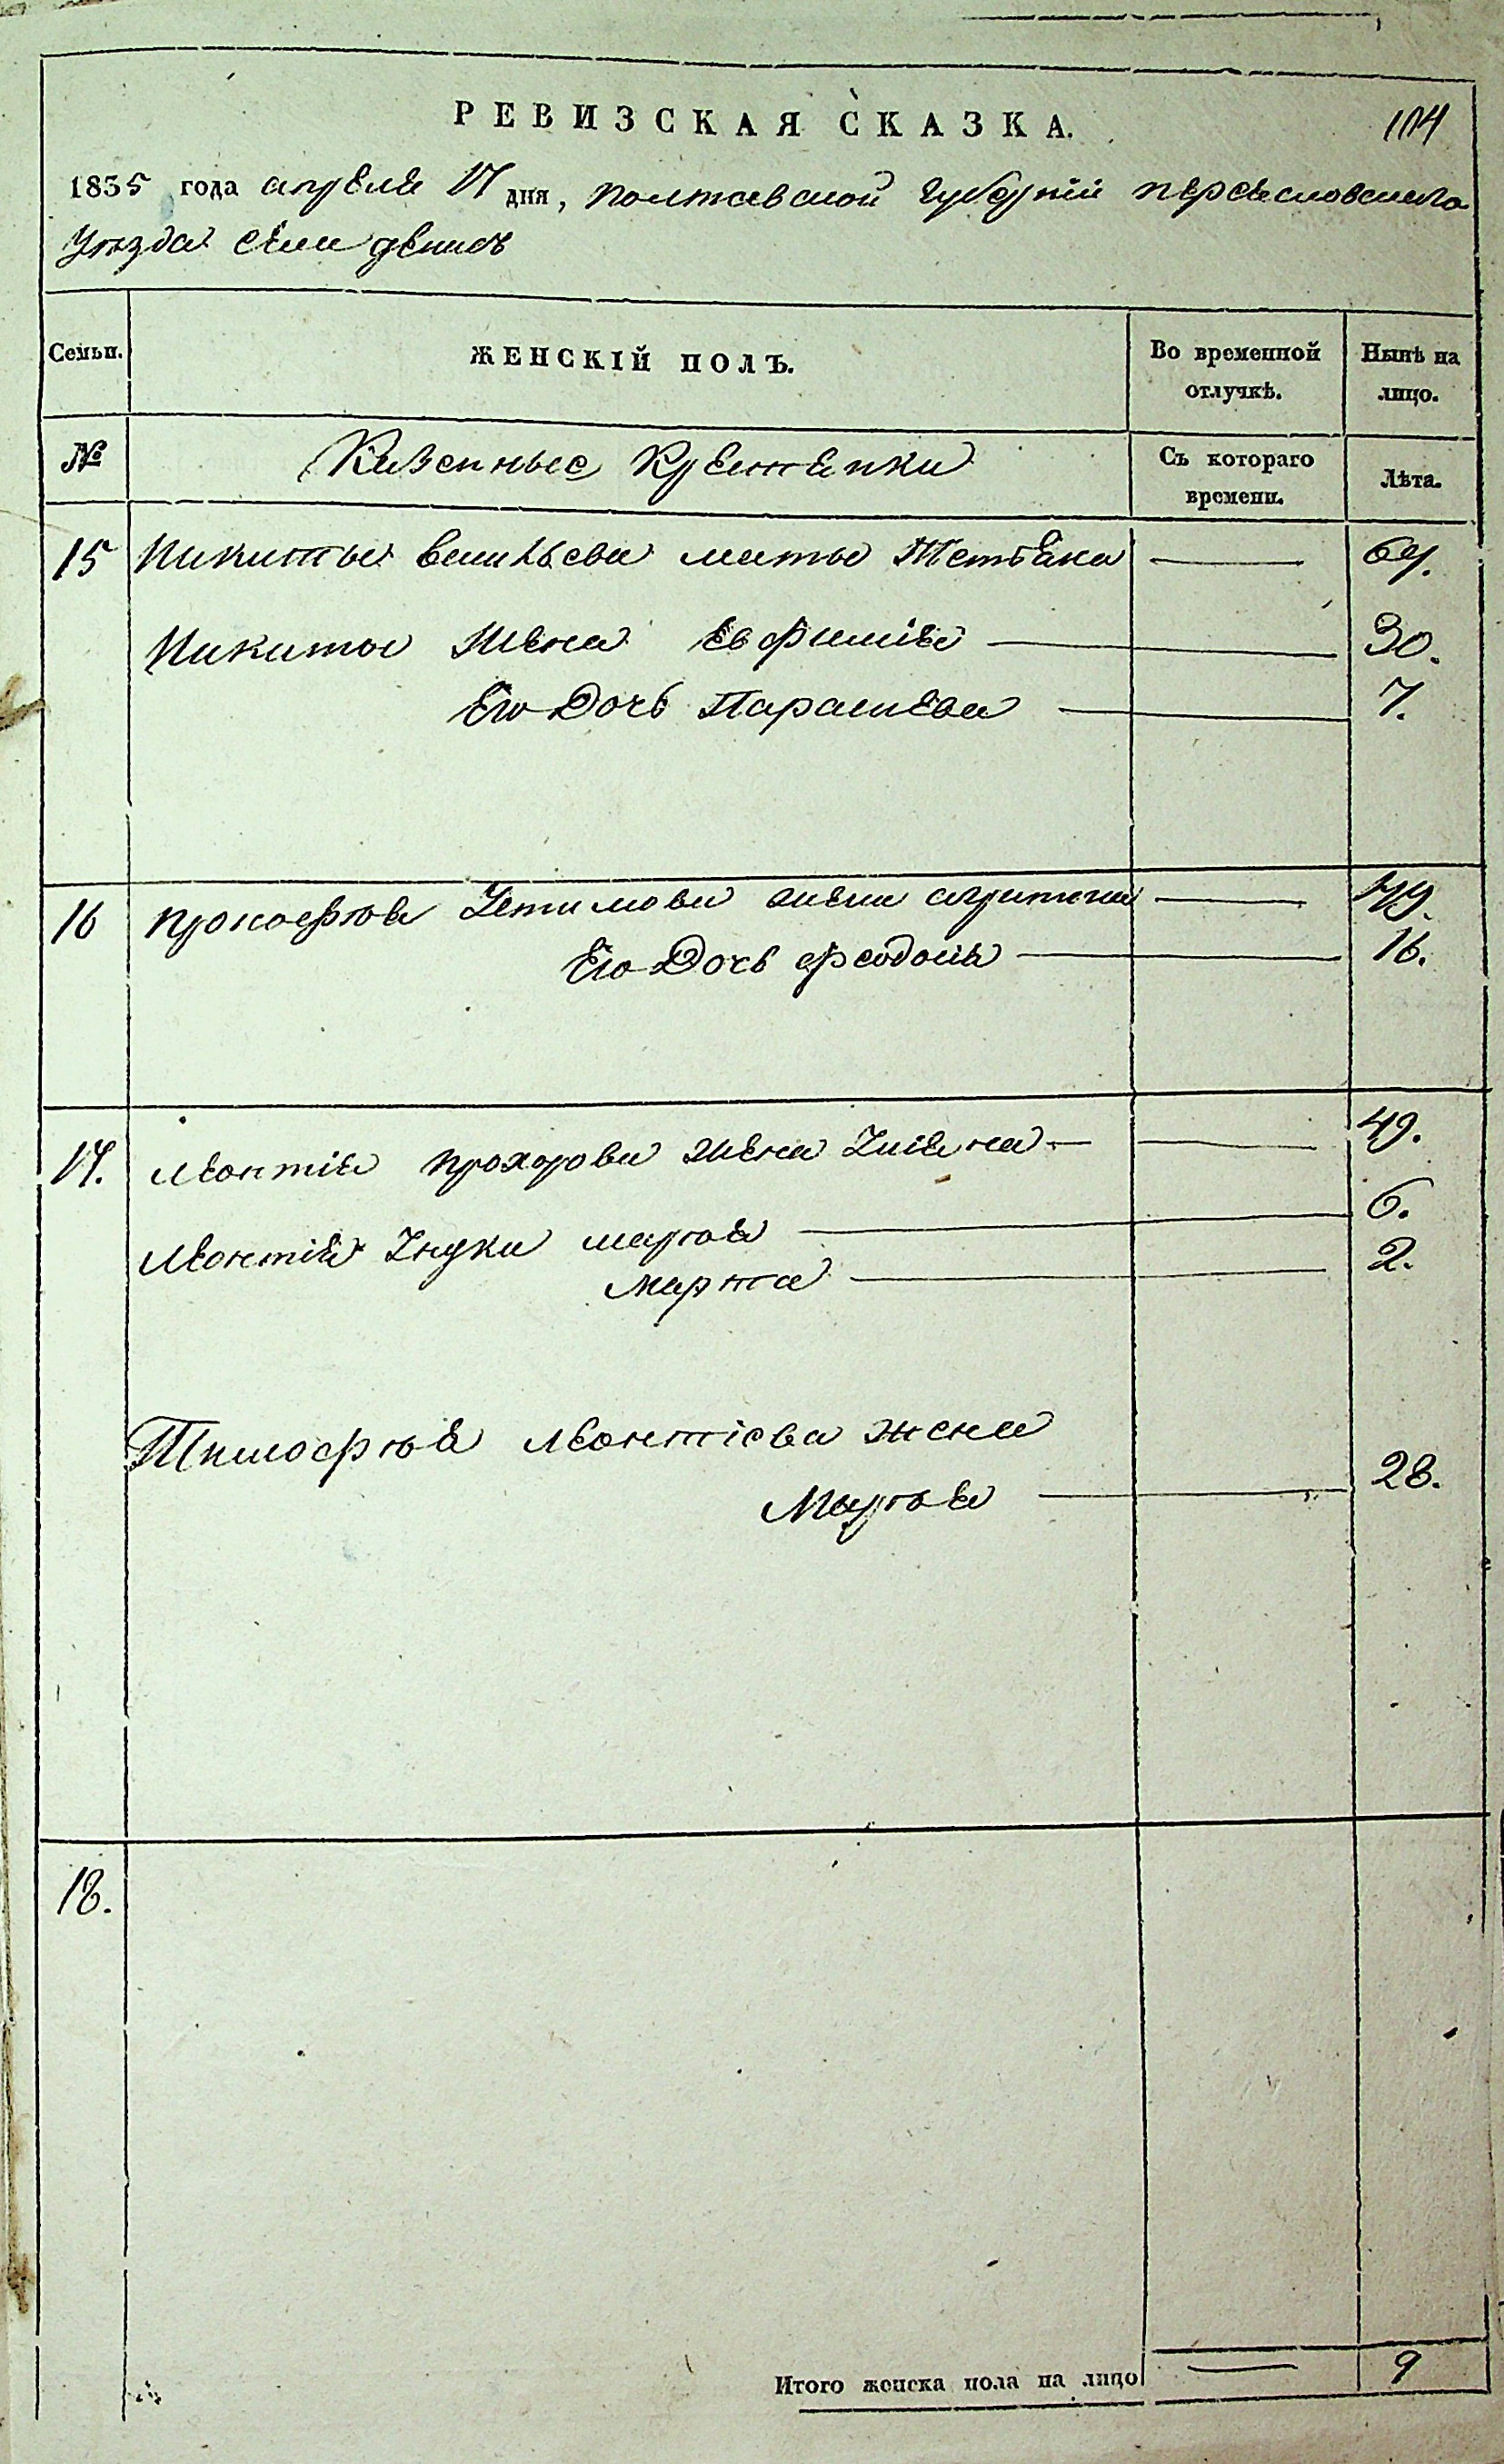 РЕВИЗСКАЯ СКАЗКА.
104
1835 года апреля 17 дня, Полтавской губернии переясловскаго
уезда села денисъ
Семьи.
ЖЕНСКІЙ ПОЛЪ.
Во временной отлучкѣ.
Ныпѣ на лицо.
№
Казенные крестянки
Съ котораго времени.
Лѣта.
15 Никиты васильева мать 64.
Никиты жена Евфимія 30.
Его дочь Параскева 7.
16 прокофія Устимова жена 49.
Его дочь феодосія 16.
17. Леонтія прохорова жена Уліяна 49.
Леонтія Унуки марія 6.
Марта 2.
Тимофія Леонтіева жена
Марія 28.
18.
Итого женска пола на лицо 9